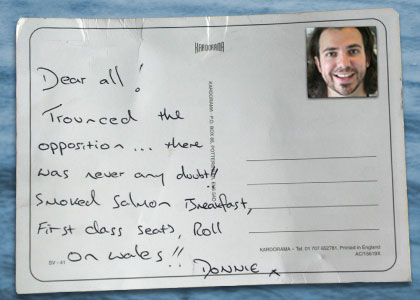 KARDORAMA
Dear all!
Trounced the
opposition... there
was never any doubt!!
Smoked Salmon Breakfast,
First class seats, Roll
on wales!!
Donnie x
SV - 41
KARDORAMA - Tel. 01 707 652781, Printed in England